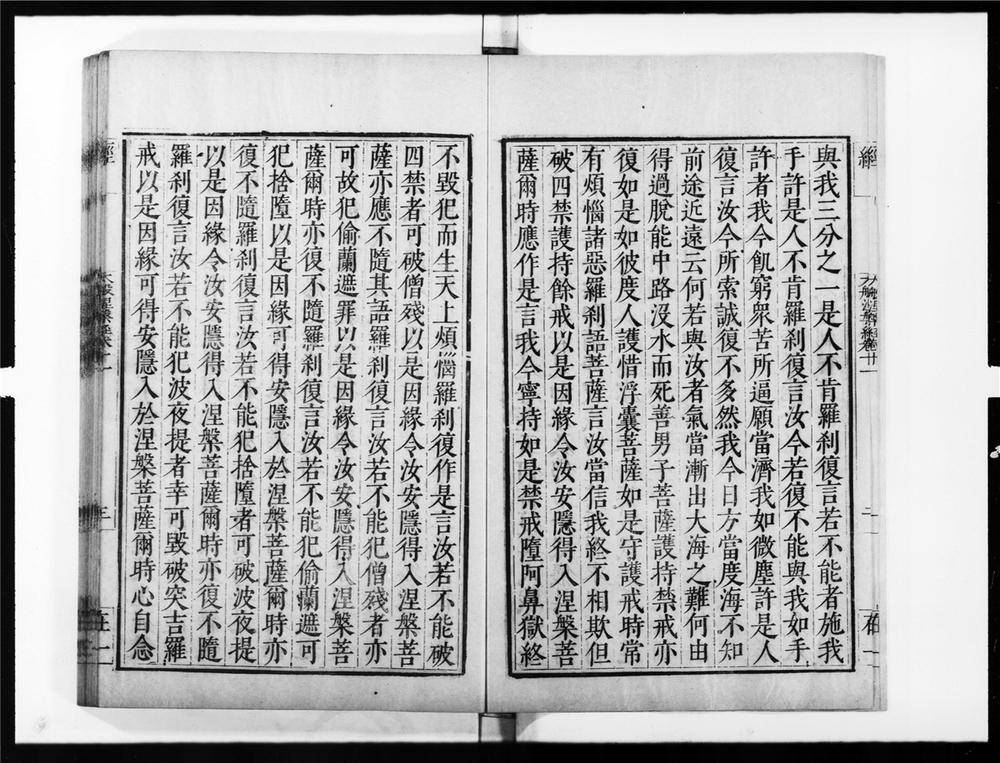 與我三分之一是人不肯羅刹復言若不能者施我
手許是人不肯羅刹復言汝今若復不能與我如手
許者我今飢窮衆苦所逼願當濟我如微塵許是人
復言汝今所索誠復不多然我今日方當度海不知
前途近遠云何若與汝者氣當漸出大海之難何由
得過脫能中路沒水而死善男子菩薩護持禁戒亦
復如是如彼度人護惜浮囊菩薩如是守護戒時常
有煩惱諸惡羅刹語菩薩言汝當信我終不相欺但
破四禁護持餘戒以是因緣令汝安隱得入涅槃菩
薩爾時應作是言我今寧持如是禁戒墮阿鼻獄終
不毀犯而生天上煩惱羅刹復作是言汝若不能破
四禁者可破僧殘以是因緣令汝安隱得入涅槃菩
薩亦應不隨其語羅刹復言汝若不能犯僧殘者亦
可故犯偷蘭遮罪以是因緣令汝安隱得入涅槃菩
薩爾時亦復不隨羅刹復言汝若不能犯偷蘭遮可
犯捨墮以是因緣可得安隱入於涅槃菩薩爾時亦
復不隨羅刹復言汝若不能犯捨墮者可破波夜提
以是因緣令汝安隱得入涅槃菩薩爾時亦復不隨
羅刹復言汝若不能犯波夜提者幸可毀破突吉羅
戒以是因緣可得安隱入於涅槃菩薩爾時心自念